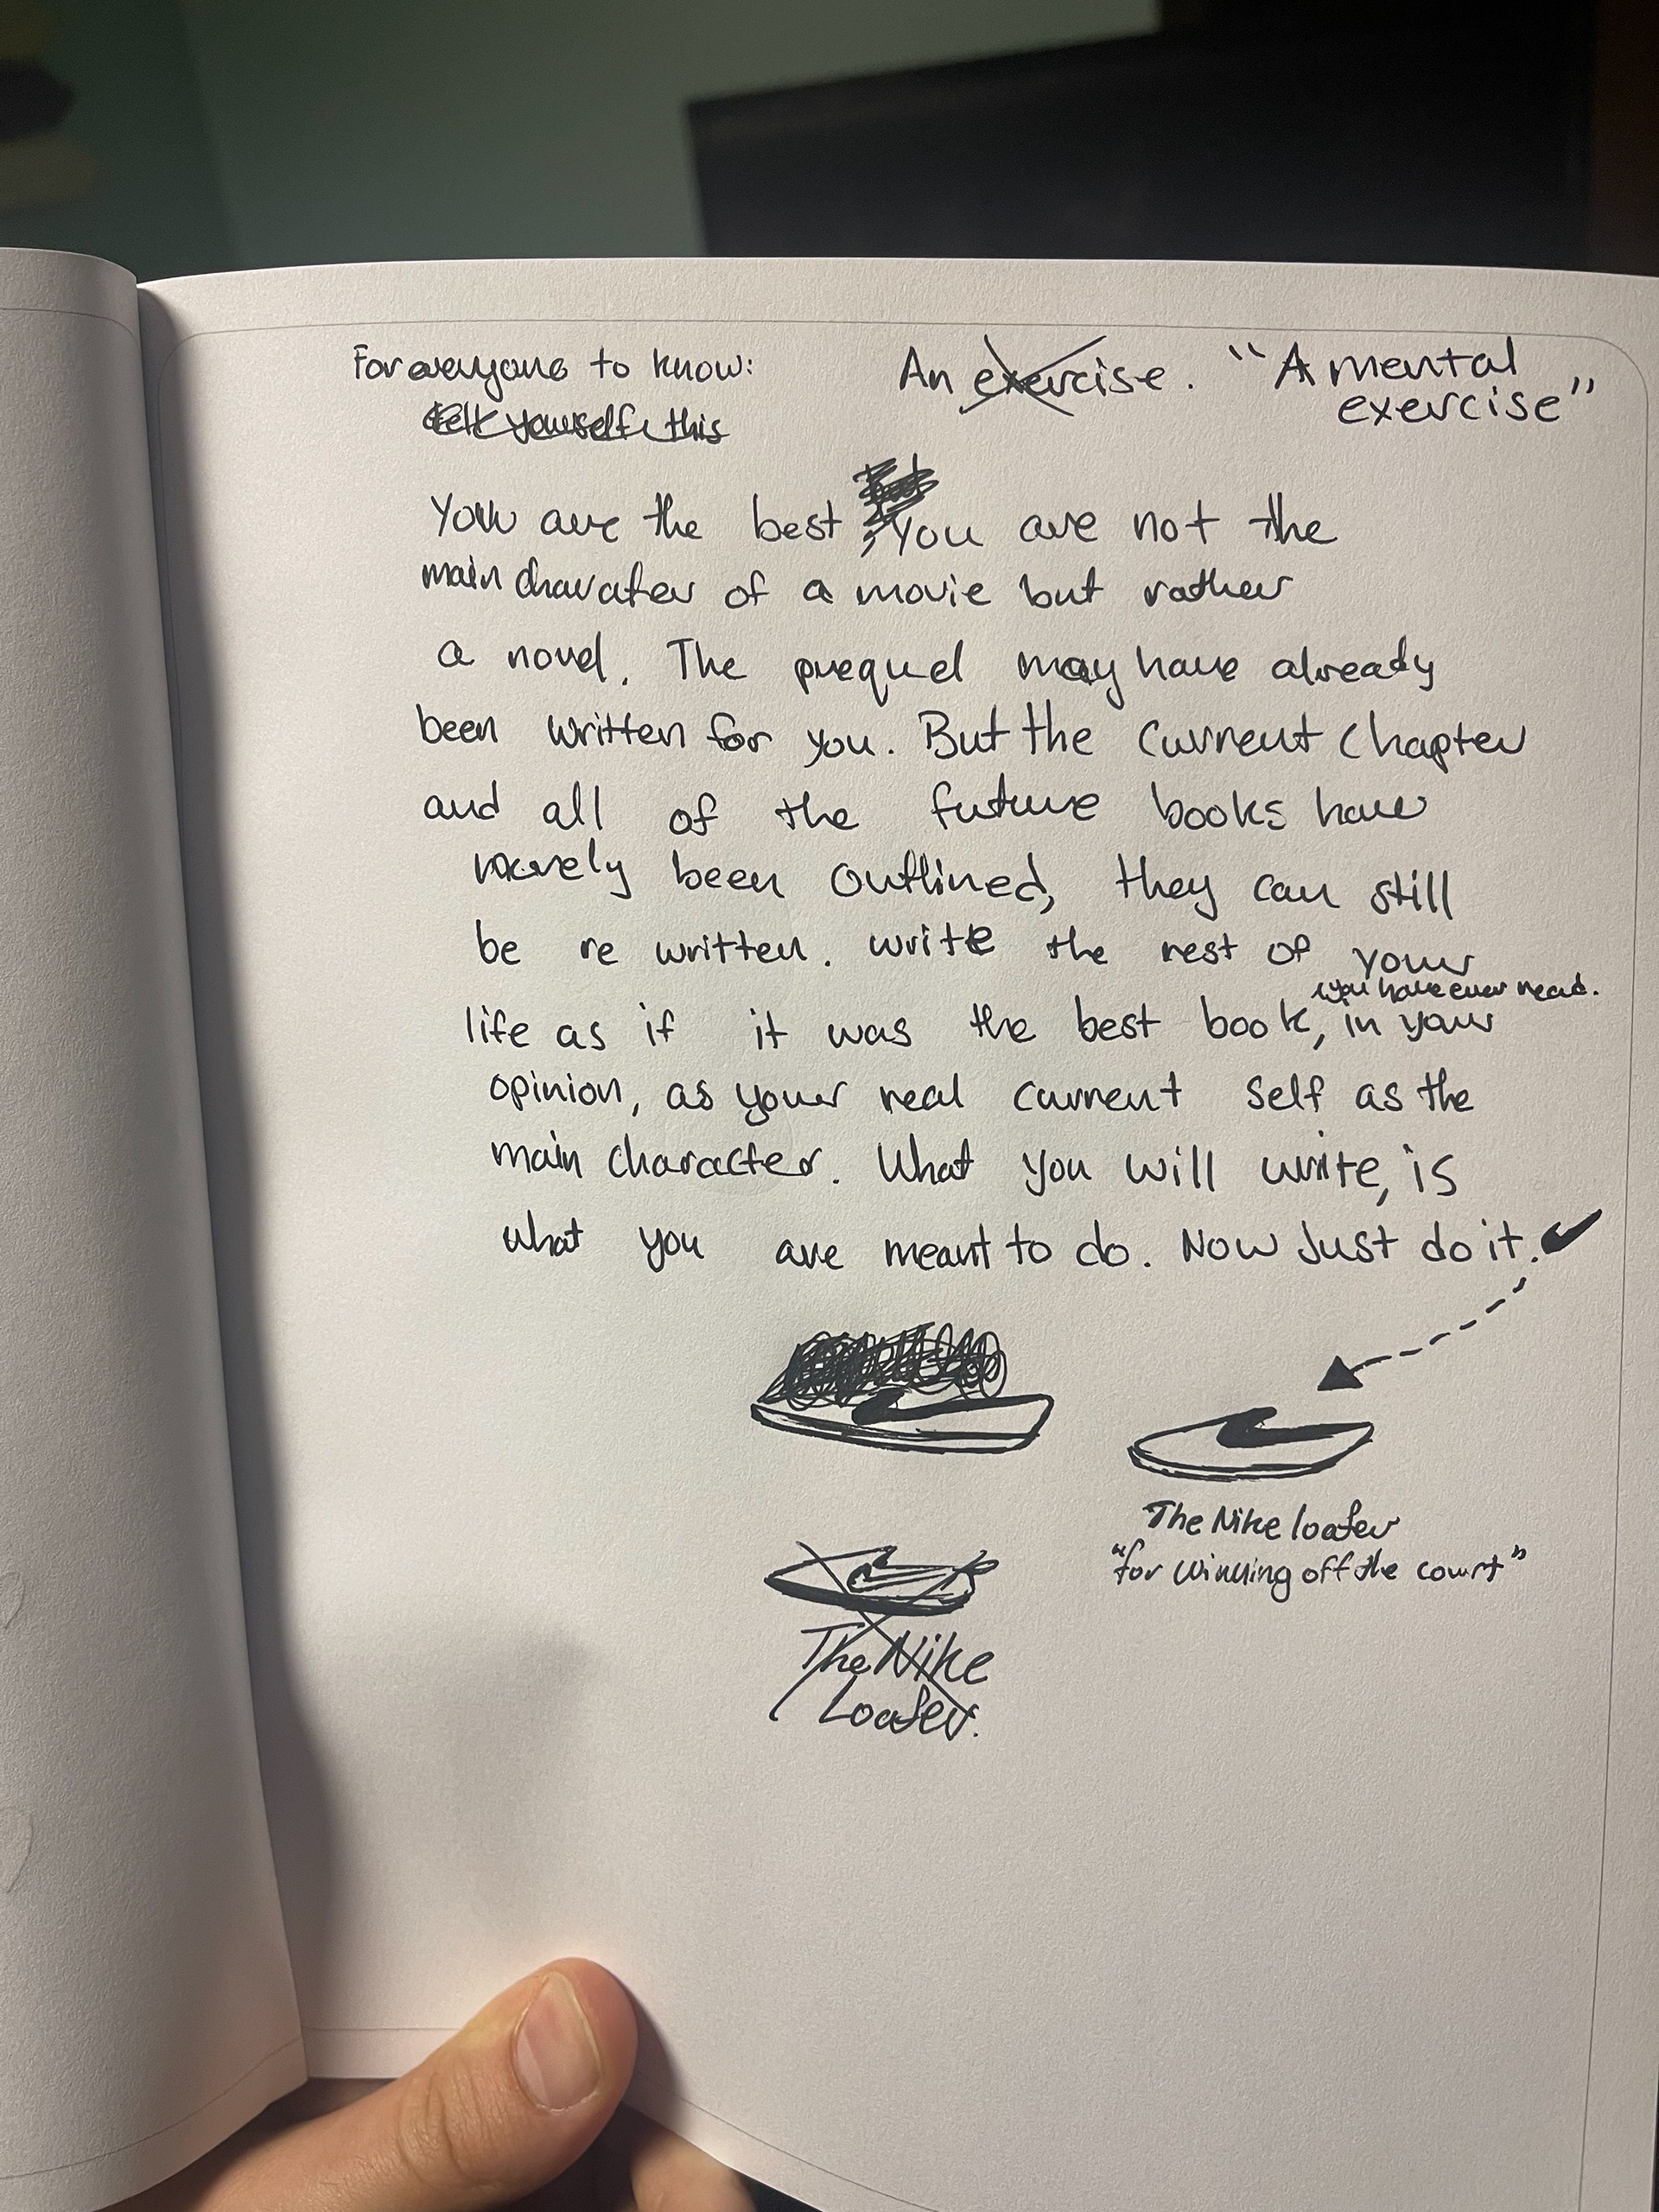 For everyone to know:
tell yourself this
An exercise. "A mental
exercise"
You are the best, you are not the
main charater of a movie but rather
a novel. The prequel may have already
been written for you. But the current chapter
and all of the future books have
merely been outlined, they can still
be re written. write the rest of your
you have ever read.
life as if it was the best book, in your
opinion, as your real current self as the
main character. What you will write, is
what you are meant to do. Now Just do it.
The Nike loafer
"for winning off the court"
The Nike
Loafer.